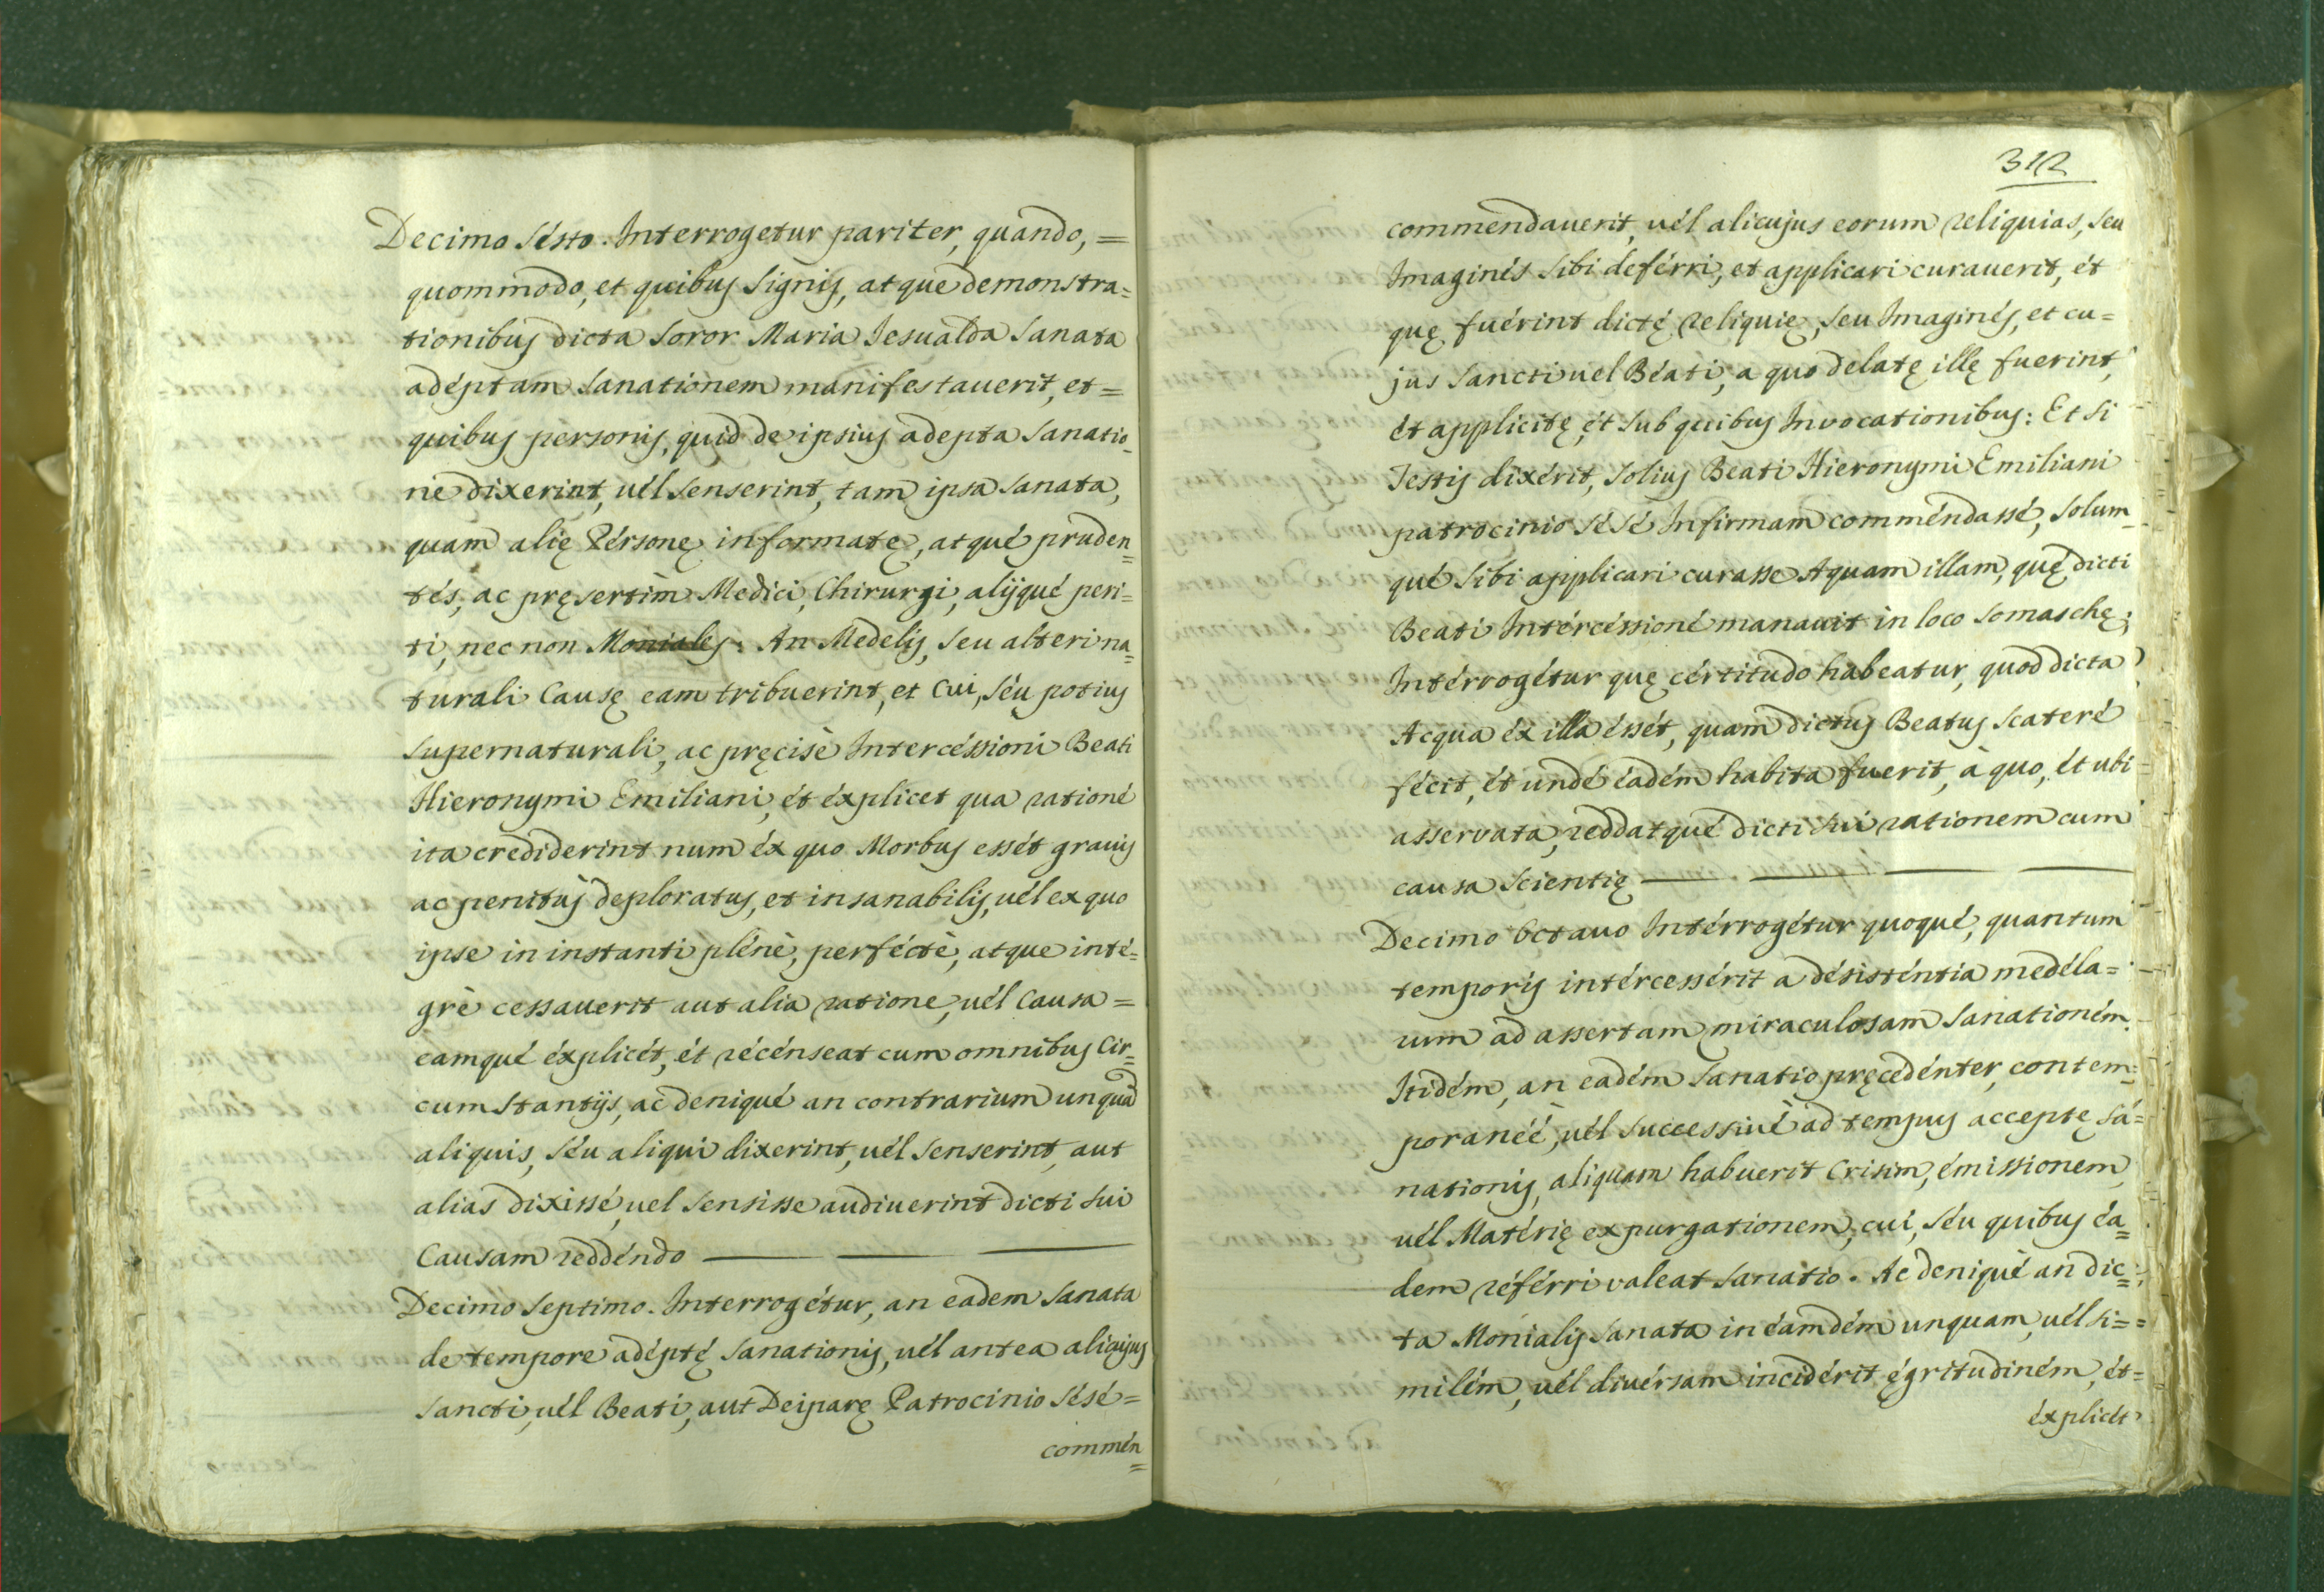 Decimo Sésto. Interrogetur pariter, quando, =
quommodo, et quibus Signis, atque demonstra=
tionibus dicta Soror Maria Jesualda Sanata
adéptam Sanationem manifestauerit, et=
quibus personis, quid de ipsius adepta Sanatio=
ne dixerint, uél Senserint, tam ipsa Sanata,
quam alię Pérsonę informatę, atqué pruden=
tés, ac pręsertim Medici, Chirurgi, alijqué peri=
ti, nec non Moniales: An Medelis, Seu alteri na=
turali Causę eam tribuerint, et Cui, Séu potius
Supernaturali, ac pręcisè Intercéssioni Beati
Hieronymi Emiliani, ét éxplicet qua rationé
ita crediderint num éx quo Morbus essét grauis
ac penitus deploratus, et insanabilis, uél ex quo
ipse in instanti plénè, perféctè, atque inté=
grè cessauerit aut alia ratione, uél Causa=
eamqué éxplicét, ét récénseat cum omnibus Cir=
cumstantijs, ac deniqué an contrarium unquã
aliquis, Séu aliqui dixerint, uél Senserint, aut
alias dixissé, uel Sensisse audiuerint dicti Sui
Causam reddéndo
Decimo Septimo. Interrogétur, an eadem Sanata
de tempore adéptę Sanationis, uél antea alicujus
Sancti, uél Beati, aut Deiparę Patrocinio Sésé=
commén=
312
commendauerit, uél alicujus eorum reliquias, Seu
Imaginés Sibi deférri, et applicari curauerit, ét
quę fuérint dictę reliquię, Seu Imaginés, et cu=
jus Sancti uel Béati, a quo delatę illę fuerint,
ét applicitę, ét Sub quibus Invocationibus: Et Si
Testis dixérit, Solius Beati Hieronymi Emiliani
patrocinio Sé Sé Infirmam comméndassé, Solum=
qué Sibi applicari curasse Aquam illam, quę dicti
Beati Intércéssioné manauit in loco Somaschę;
Intérrogétur quę cértitudo habeatur, quod dicta
Acqua éx illa éssét, quam dictus Beatus Scateré
fécit, ét undé éadém habita fuerit, à quo, ét ubi=
asservata, reddatqué dicti Sui rationem cum
causa Scientię
Decimo Octauo Intérrogétur quoqué, quantum
temporis intércessérit a désisténtia medéla=
rum ad assertam miraculosam Sanationém.
Itidém, an eadém Sanatio pręcedénter, contem=
poranéé, uél Successiué ad tempus acceptę Sa=
nationis, aliquam habuerit Crisim, émissionem,
uél Matérię expurgationem, cui, Séu quibus éa=
dem référri valeat Sanatio. Ac deniqué an dic=
ta Monialis Sanata in éamdém unquam, uél Si=
milém, uél diuérsam incidérit ęgritudiném, ét=
éxplicét